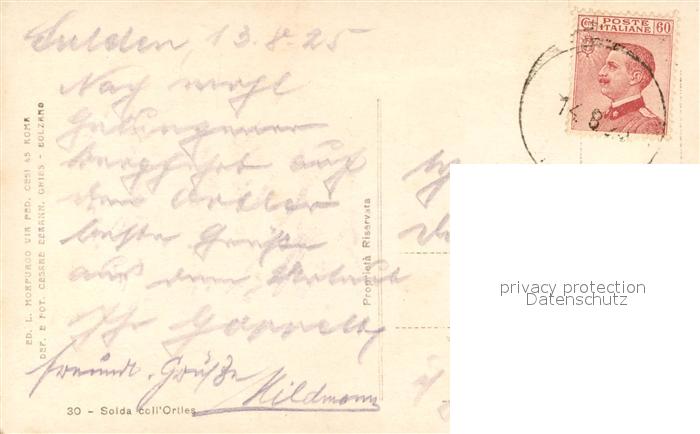 Sulden, 13.8.25
Nach wohl
gelungener
Bergfahrt auf
den Ortler
beste Grüße
aus dem Urlaub
Ihr
freundl. Grüße
Mildmann
30 - Solda coll'Ortles
ED. L. MORPURGO VIA FED. CESI 45 ROMA
DEP. E FOT. CESARE BERANN. GRIES - BOLZANO
Proprietà Riservata
Cent POSTE ITALIANE 60
14.8
privacy protection
Datenschutz